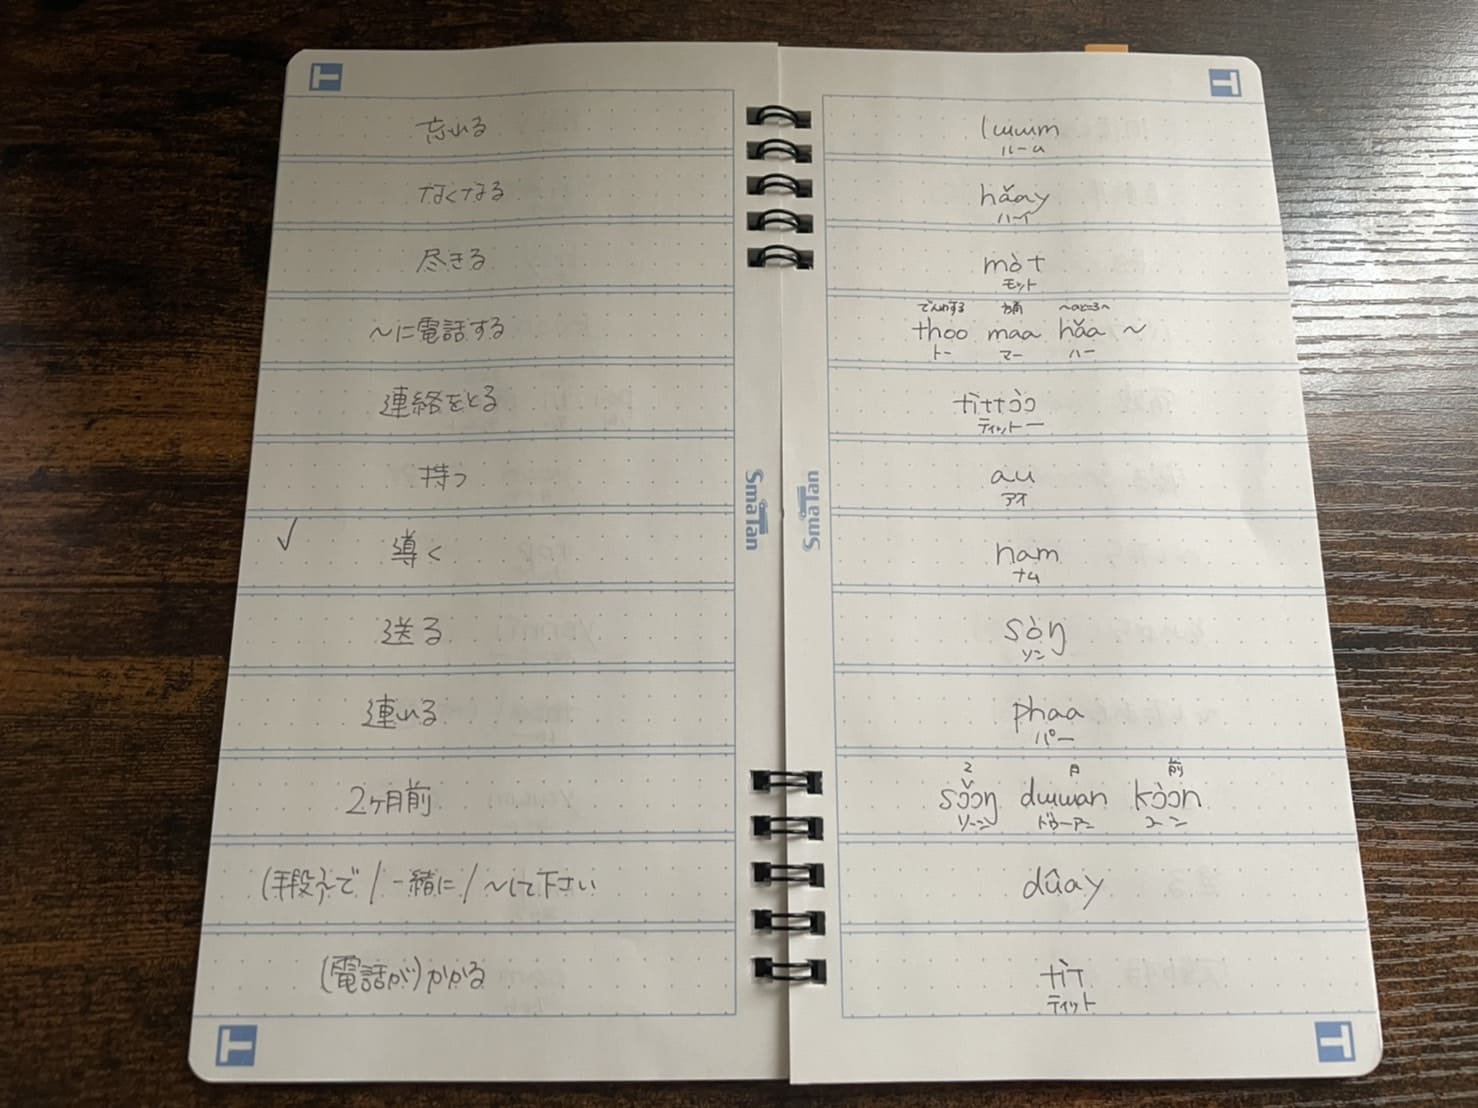 忘れる
lɯɯm
ルーム
なくなる
hǎay
ハーイ
尽きる
mòt
モット
〜に電話する
でんわする 方向 〜のところへ
thoo maa hǎa 〜
トー マー ハー
連絡をとる
tìttɔ̀ɔ
ティットー
持つ
au
アオ
✓ 導く
nam
ナム
送る
sòŋ
ソン
連れる
phaa
パー
2ヶ月前
2 月 前
sɔ̌ɔŋ dɯɯan kɔ̀ɔn
ソーン ドゥーアン コーン
(手段)で/一緒に/〜して下さい
dûay
(電話が)かかる
tìt
ティット
SmaTan
SmaTan